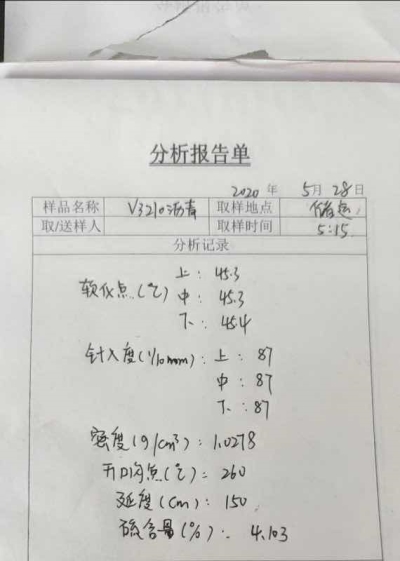 分析报告单
2020 年 5月 28日
样品名称 V3210沥青 取样地点 储运
取/送样人 取样时间 5:15
分析记录
软化点(℃) 上: 45.3
中: 45.3
下: 45.4
针入度(1/10mm): 上: 87
中: 87
下: 87
密度(g/cm³): 1.0278
开口闪点(℃): 260
延度(cm): 150
硫含量(%): 4.103